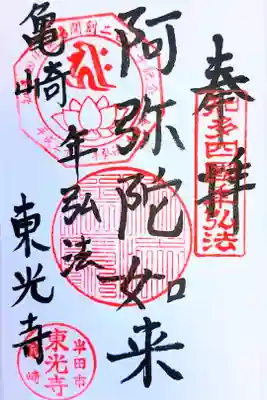 奉拝
知多四国年弘法
阿弥陀如来
亀崎
年弘法
東光寺
半田市
東光寺
亀崎